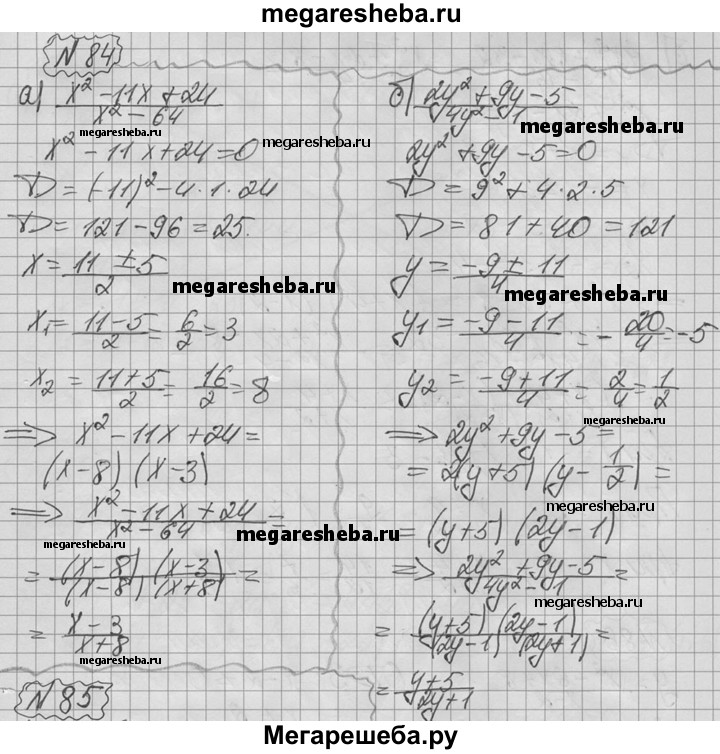 megaresheba.ru
N 84
а) (x² - 11x + 24)/(x² - 64)
megaresheba.ru
x² - 11x + 24 = 0 megaresheba.ru
D = (-11)² - 4 · 1 · 24
D = 121 - 96 = 25.
x = (11 ± 5)/2
megaresheba.ru
x₁ = (11 - 5)/2 = 6/2 = 3
x₂ = (11 + 5)/2 = 16/2 = 8
=> x² - 11x + 24 =
(x - 8) (x - 3)
=> (x² - 11x + 24)/(x² - 64) =
megaresheba.ru
= ((x - 8) (x - 3))/((x - 8) (x + 8)) =
megaresheba.ru
= (x - 3)/(x + 8)
megaresheba.ru
б) (2y² + 9y - 5)/(4y² - 1)
megaresheba.ru
2y² + 9y - 5 = 0
D = 9² + 4 · 2 · 5
D = 81 + 40 = 121
y = (-9 ± 11)/4
megaresheba.ru
y₁ = (-9 - 11)/4 = - 20/4 = -5
y₂ = (-9 + 11)/4 = 2/4 = 1/2
megaresheba.ru
=> 2y² + 9y - 5 =
= 2(y + 5) (y - 1/2) =
megaresheba.ru
= (y + 5) (2y - 1)
=> (2y² + 9y - 5)/(4y² - 1) =
megaresheba.ru
= ((y + 5) (2y - 1))/((2y - 1) (2y + 1)) =
= (y + 5)/(2y + 1)
N 85
Мегарешеба.ру